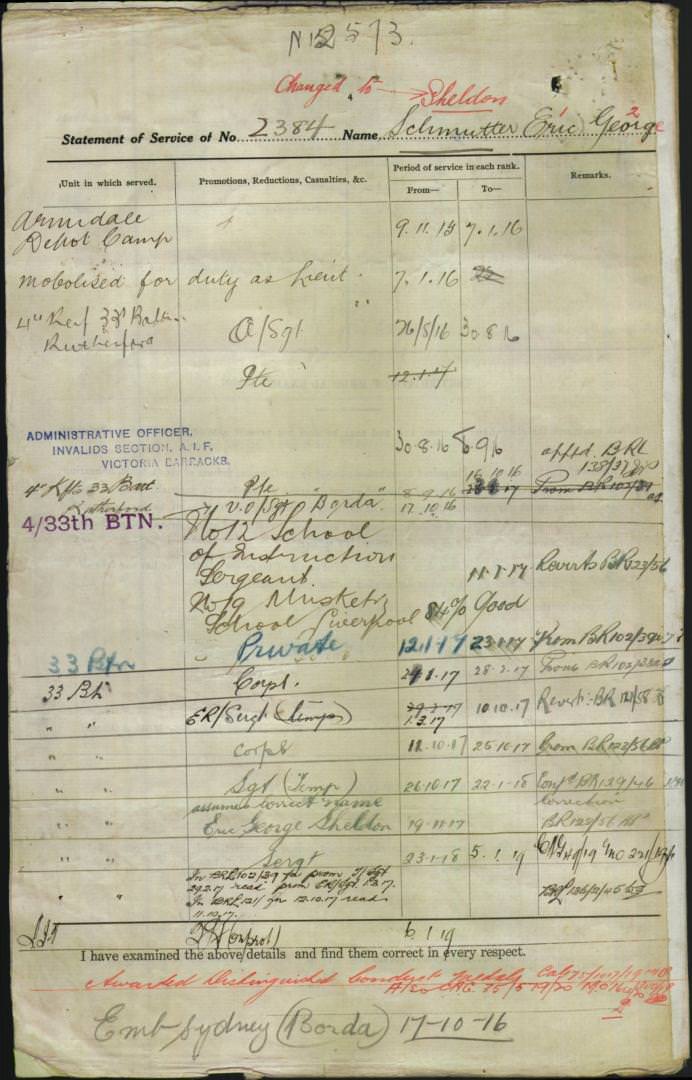 Changed to Sheldon
Statement of Service of No. 2384 Name Schmutter Eric George
1 2
Unit in which served. Promotions, Reductions, Casualties, &c. Period of service in each rank. Remarks.
From— To—
Armidale
Depot Camp 9.11.15 7.1.16
mobolised for duty as Lieut. 7.1.16
4" Reif 33d Battn
Rutherford A/Sgt 26/5/16 30.8.16
Pte 12.1.17
ADMINISTRATIVE OFFICER,
INVALIDS SECTION, A.I.F,
VICTORIA BARRACKS.
30.8.16 8.9.16 appd. BRL
138/37
4" Rfts 33 Batt Pte " " 8.9.16 16.10.16 From BR102/39
Rutherford V.O/Sgt "Borda" 17.10.16
4/33th BTN.
No 12 School
of Instruction
Sergeant. 11.1.17 Reverts BR123/56
No 9 Musketry
School Liverpool 84% Good
33 Btn Private 12.1.17 23.1.17 From BR102/39
33 Bn Corpl. 24.1.17 28.2.17 From BR102/39
" " ER/Sergt (temp) 29.2.17 10.10.17 Revert: BR 121/58
1.3.17
" " Corpl 11.10.17 25.10.17 From BR122/56
" " Sgt (Temp) 26.10.17 22.1.18 Conf'd BR129/46
assumes correct name correction
" " Eric George Sheldon 19.11.17 BR122/56
" " Sergt 23.1.18 5.1.19
" " In BRL102/39 for prom T/Sgt
29.2.17 read prom ER/Sgt. 1.3.17.
In BRL 121/ for 12.10.17 read
11.10.17.
6.1.19
I have examined the above details and find them correct in every respect.
Awarded Distinguished Conduct Medal
Also CAG 75/5
Emb Sydney (Borda) 17-10-16